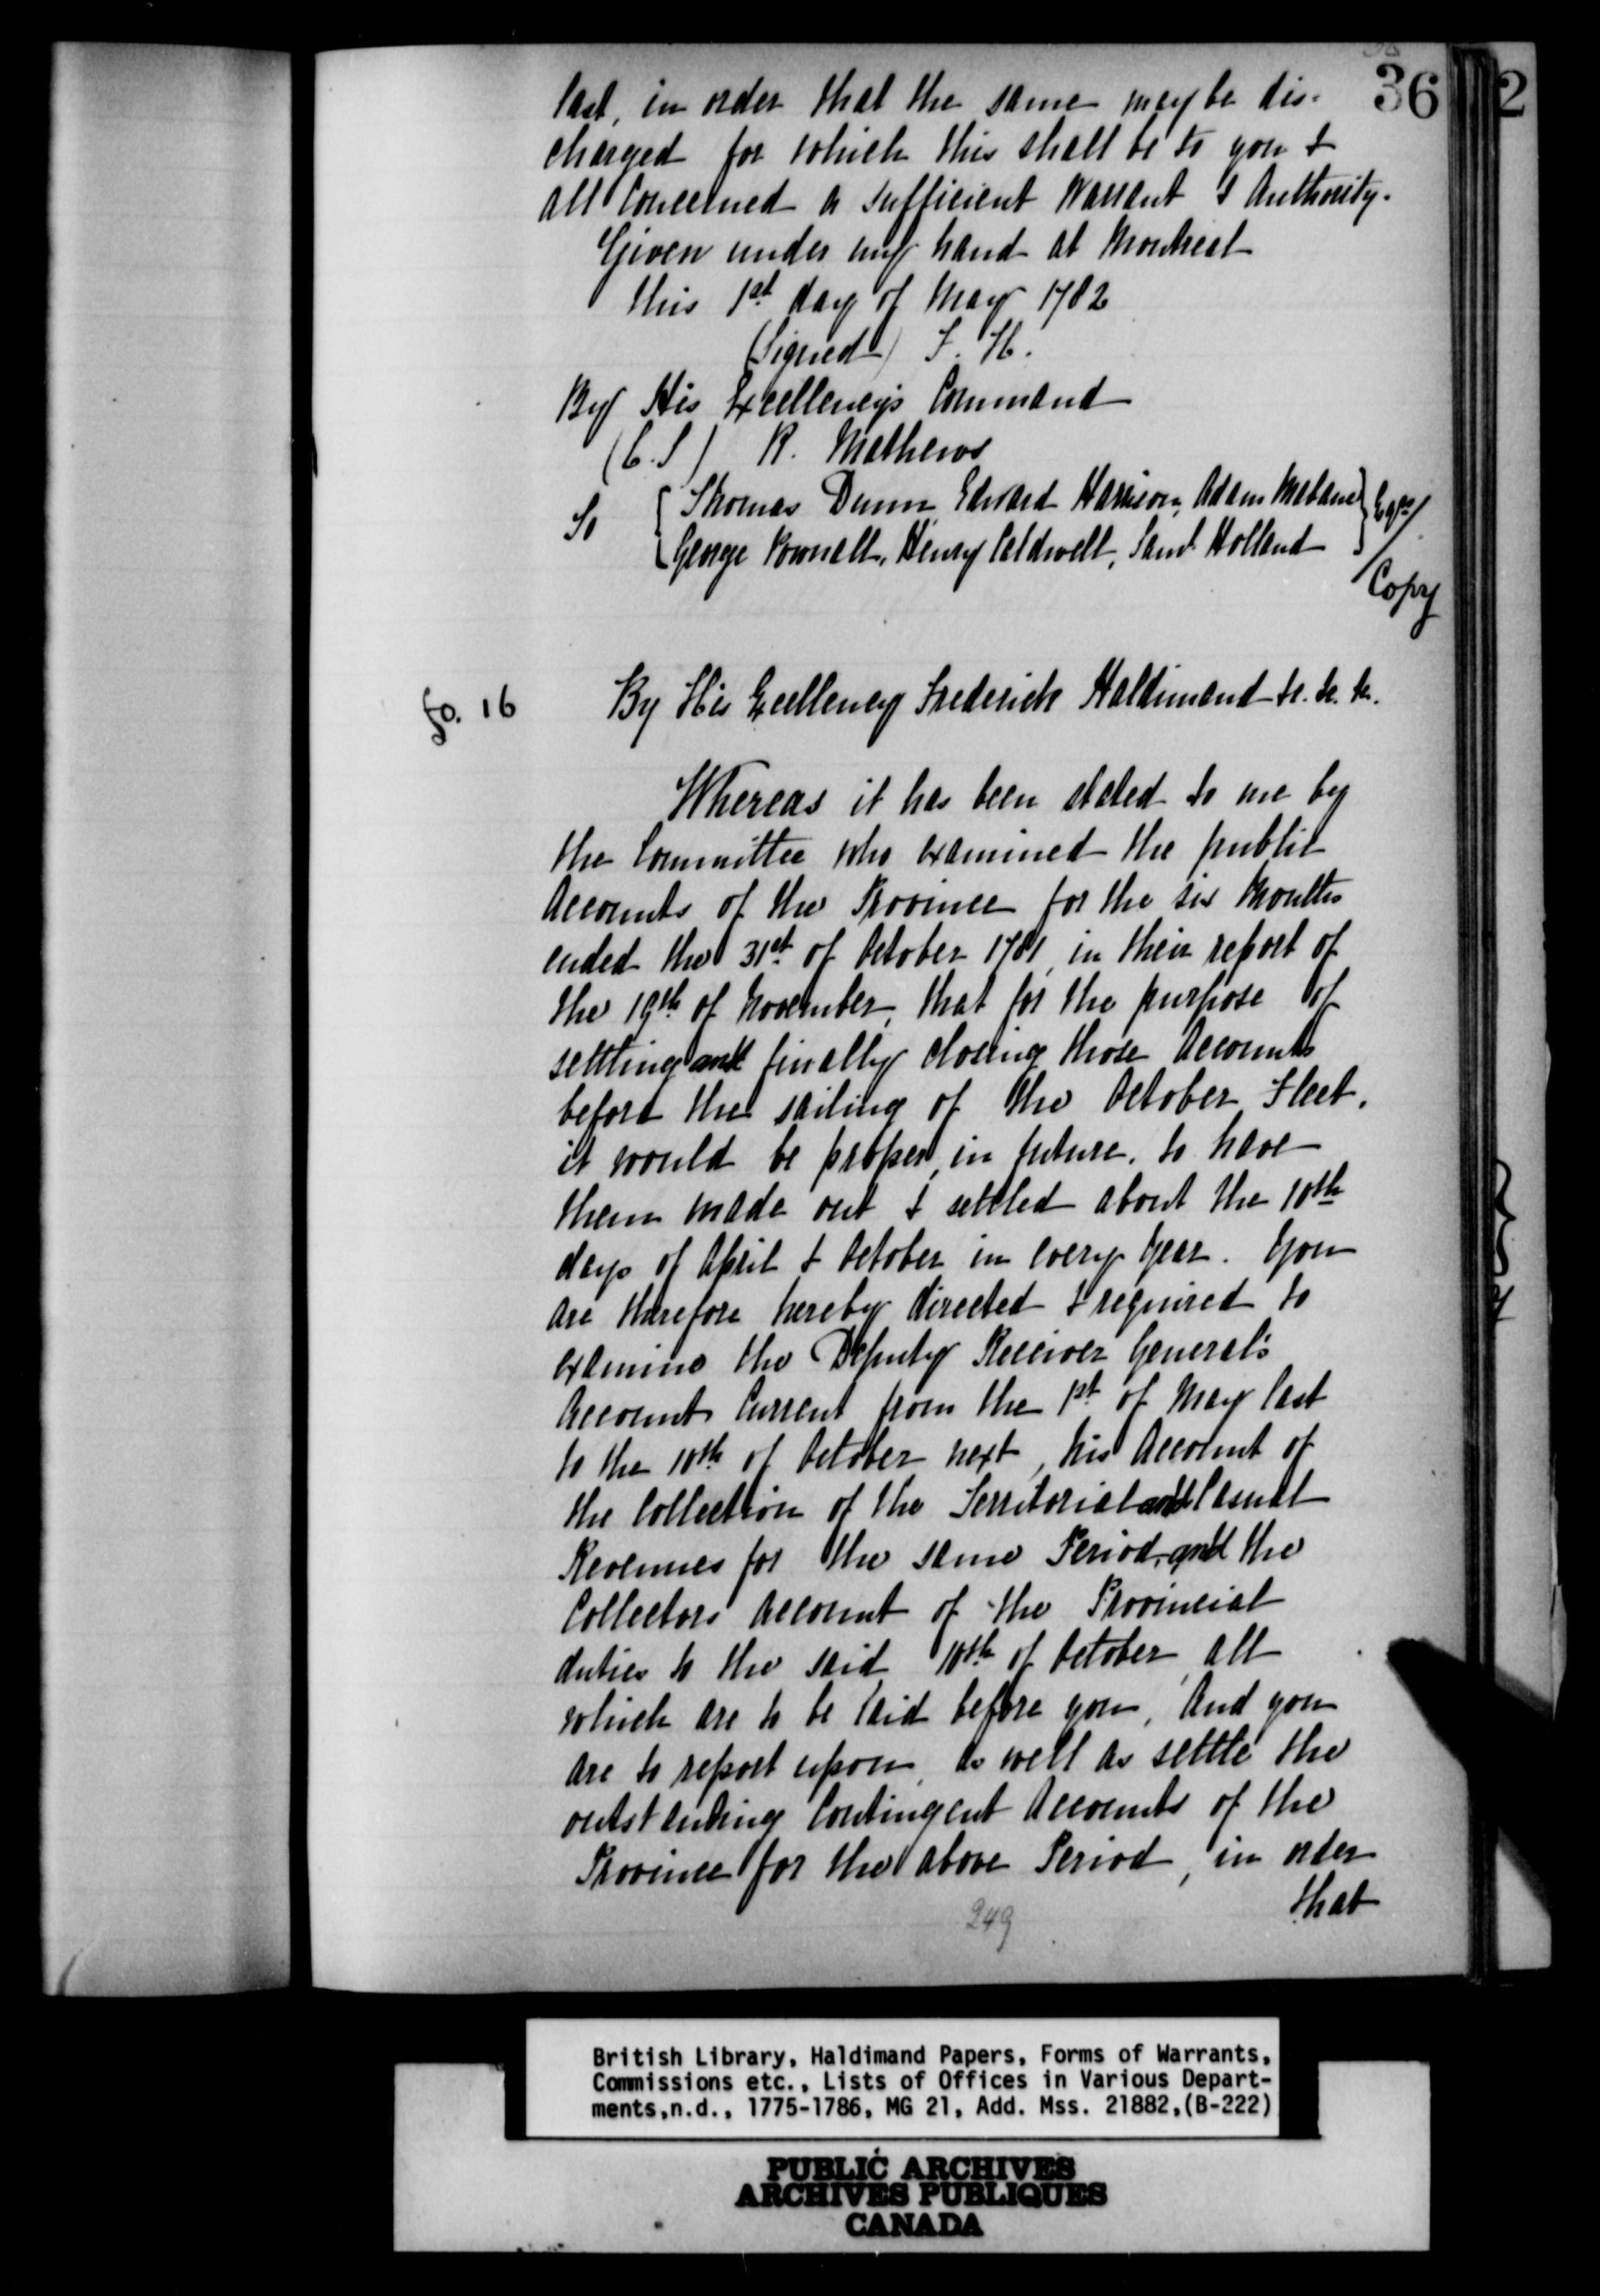 36
2
last, in order that the same may be dis-
charged for which this shall be to you &
all Concerned a sufficient Warrant & Authority.
Given under my hand at Montreal
this 1st day of May 1782
(Signed) F. H.
By His Excellency's Command
(C.S) R. Mathews
To { Thomas Dunn, Edward Harrison, Adam Mabane } Esqrs/
{ George Pownall, Henry Caldwell, Saml Holland }
Copy
fo. 16
By His Excellency Frederick Haldimand &c. &c. &c.
Whereas it has been stated to me by
the Committee who examined the public
Accounts of the Province for the six Months
ended the 31st of October 1781, in their report of
the 19th of November, that for the purpose of
settling and finally closing those Accounts
before the sailing of the October Fleet,
it would be proper, in future, to have
them made out & settled about the 10th
days of April & October in every Year. You
are therefore hereby directed & required to
examine the Deputy Receiver General's
Account Current from the 1st of May last
to the 10th of October next, his Account of
the Collection of the Territorial and Casual
Revenues for the same Period, and the
Collectors Account of the Provincial
duties to the said 10th of October, all
which are to be laid before you, And you
are to report upon, as well as settle the
outstanding Contingent Accounts of the
Province for the above Period, in order
that
249
British Library, Haldimand Papers, Forms of Warrants,
Commissions etc., Lists of Offices in Various Depart-
ments,n.d., 1775-1786, MG 21, Add. Mss. 21882,(B-222)
PUBLIC ARCHIVES
ARCHIVES PUBLIQUES
CANADA